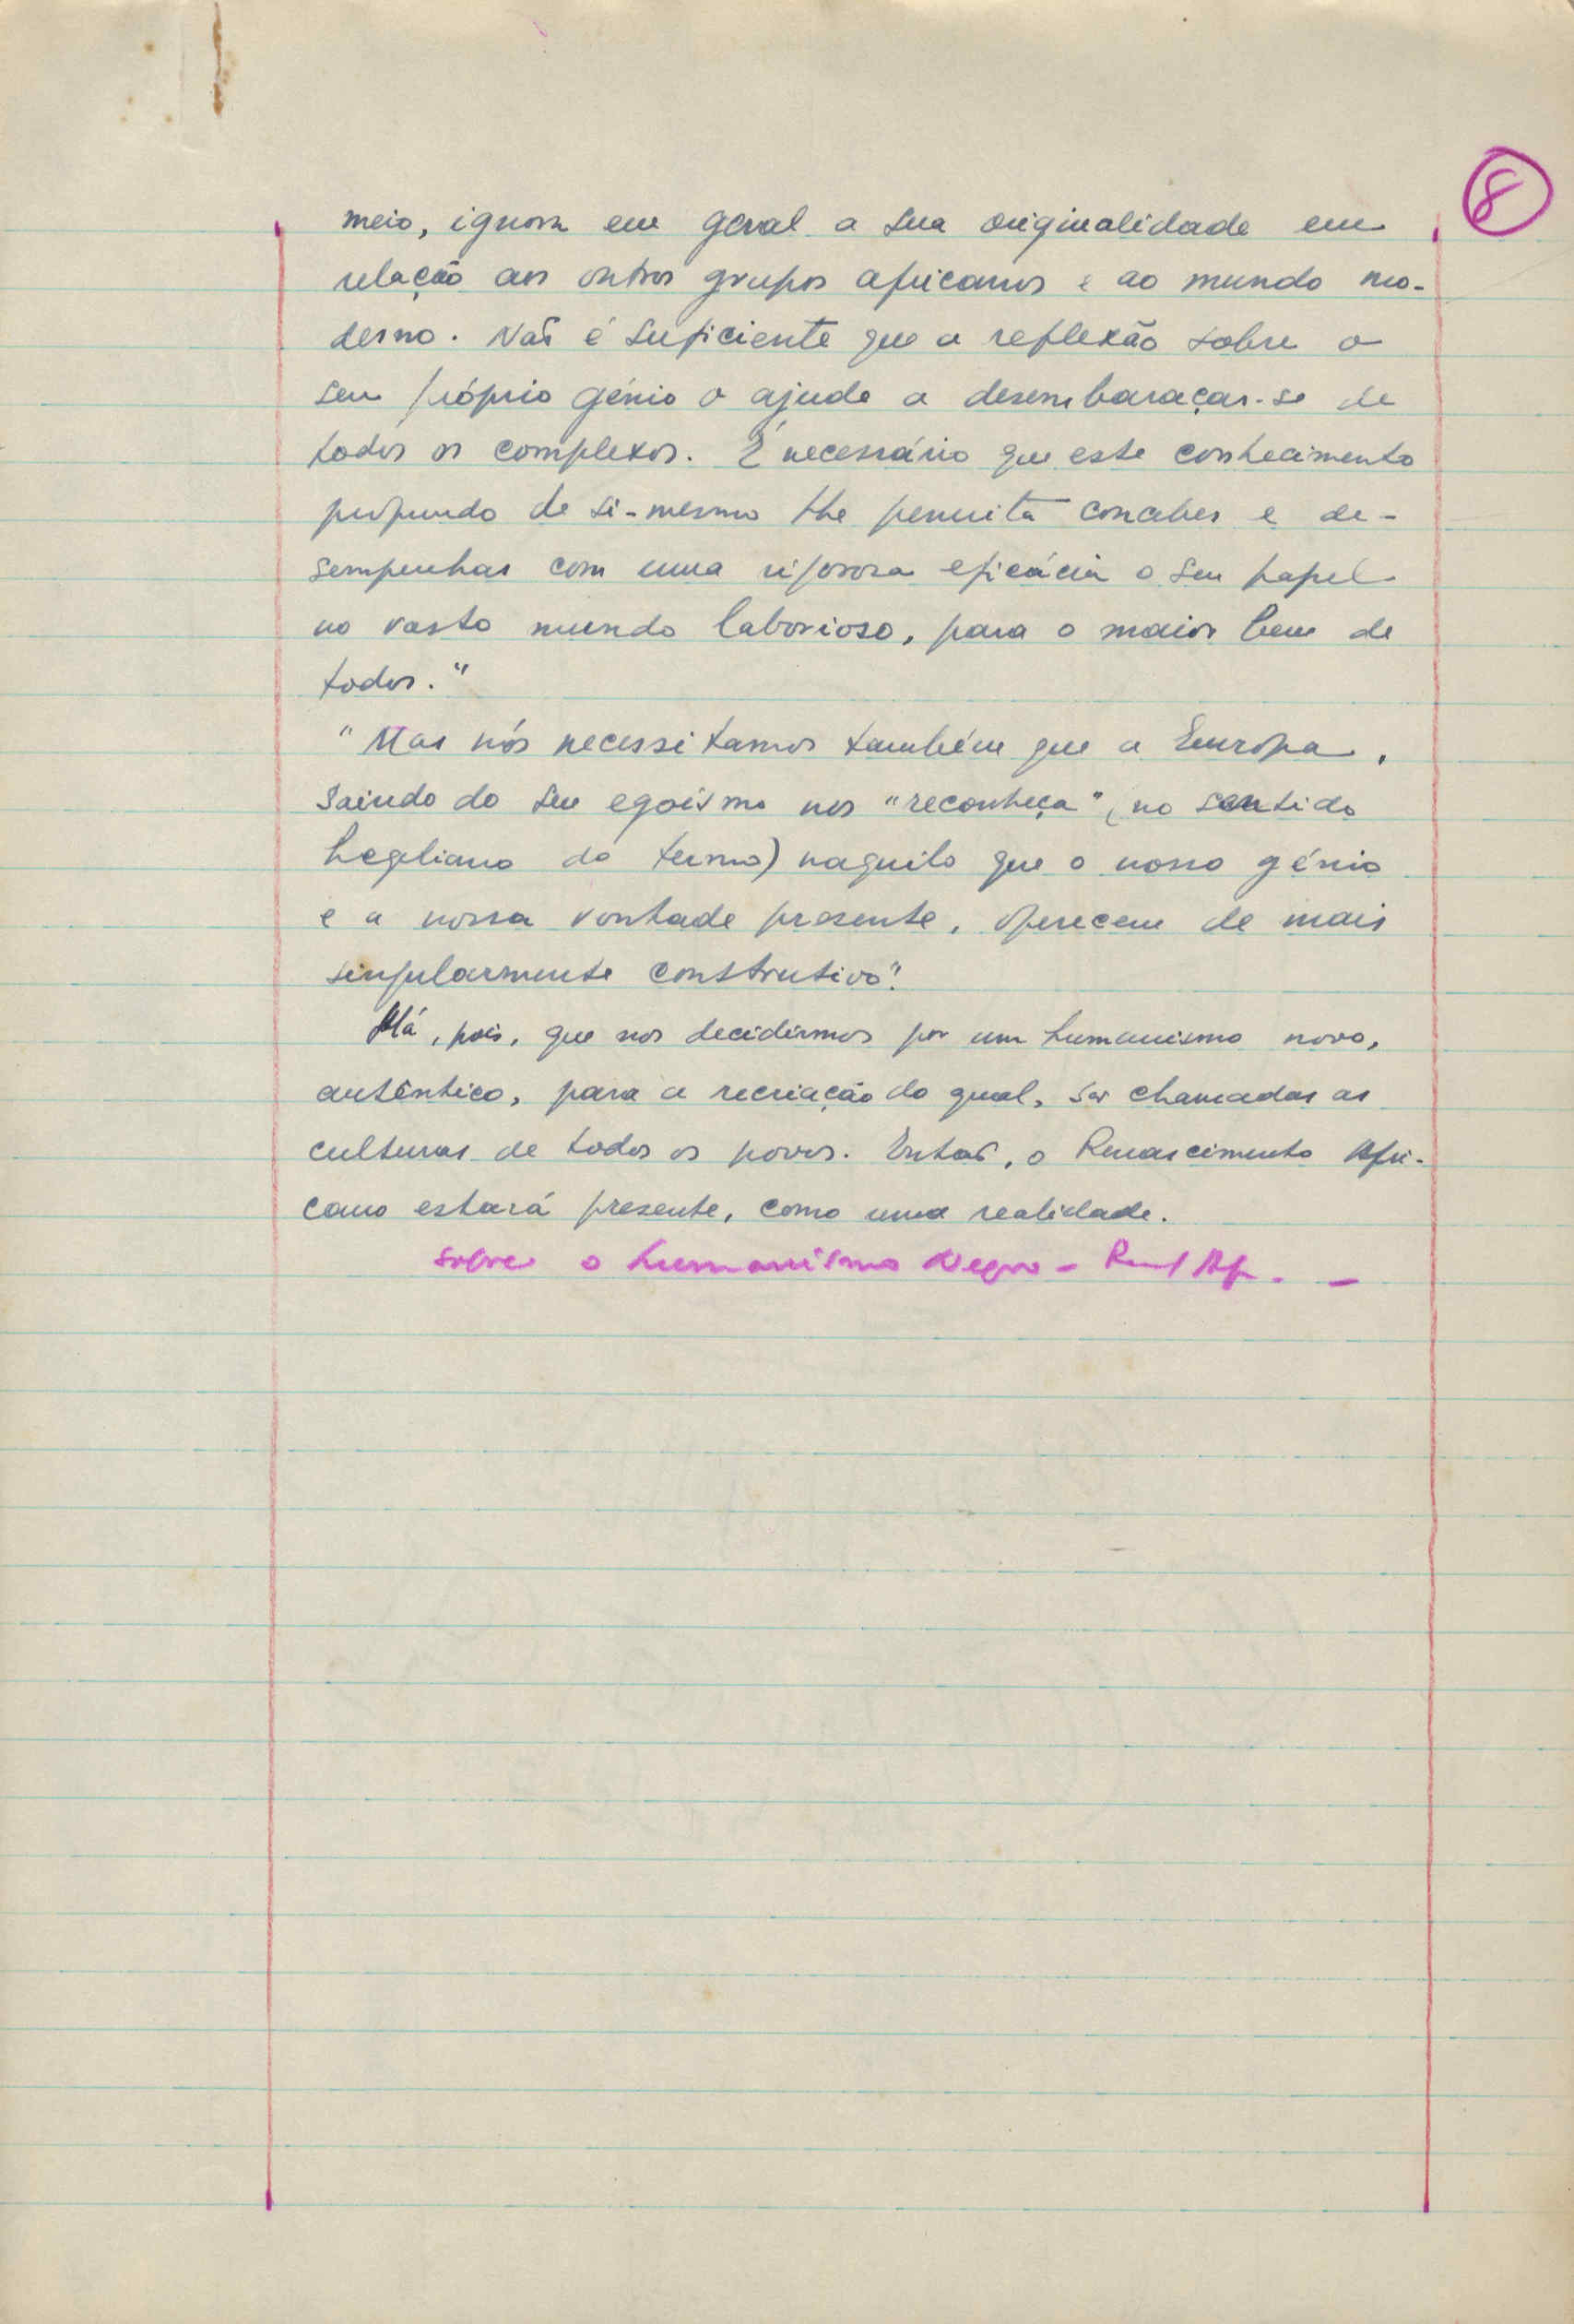 8
meio, ignora em geral a sua originalidade em
relação aos outros grupos africanos e ao mundo mo-
derno. Não é suficiente que a reflexão sobre o
seu próprio génio o ajude a desembaraçar-se de
todos os complexos. É necessário que este conhecimento
profundo de si-mesmo lhe permita conceber e de-
sempenhar com uma rigorosa eficácia o seu papel
no vasto mundo laborioso, para o maior bem de
todos."
"Mas nós necessitamos também que a Europa,
saindo do seu egoísmo nos "reconheça" (no sentido
hegeliano do termo) naquilo que o nosso génio
e a nossa vontade presente, oferecem de mais
singularmente construtivo".
Há, pois, que nos decidirmos por um humanismo novo,
autêntico, para a recriação do qual, são chamadas as
culturas de todos os povos. Então, o Renascimento Afri-
cano estará presente, como uma realidade.
Sobre o humanismo Negro - Af. -